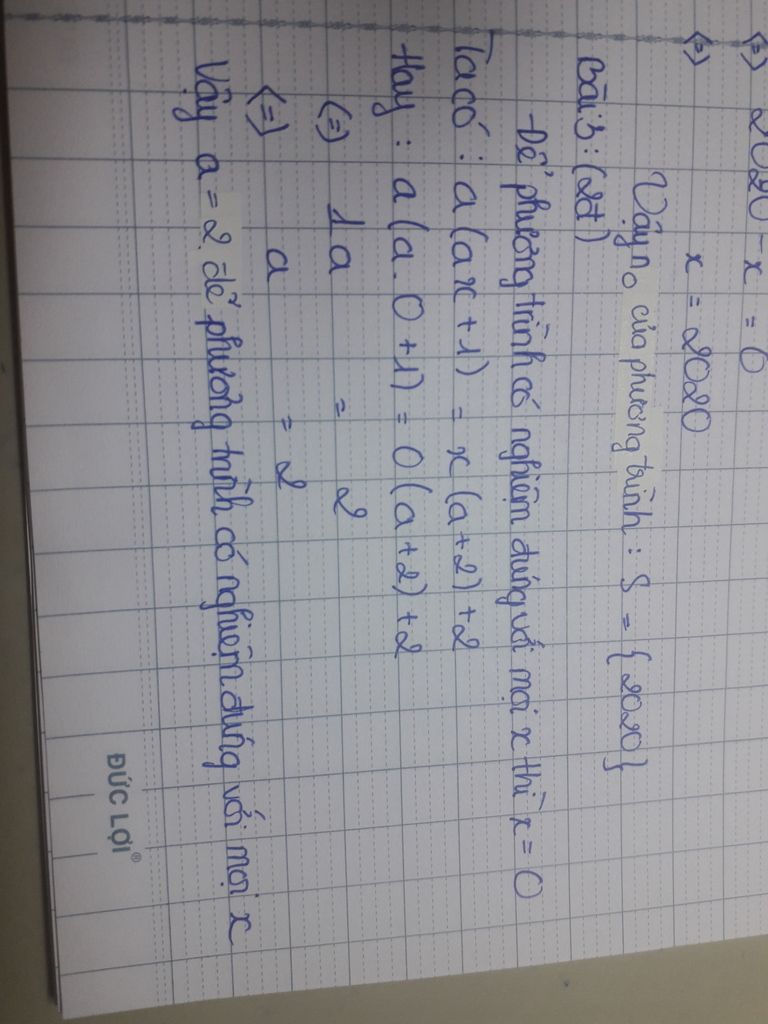 (=) 2020 - x = 0
(=) x = 2020
Vậy n₀ của phương trình : S = {2020}
Bài 3 : (2đ)
- Để phương trình có nghiệm đúng với mọi x thì x = 0
Ta có : a(ax+1) = x(a+2)+2
Hay : a(a.0+1) = 0(a+2)+2
(=) 1a = 2
(=) a = 2
Vậy a = 2 để phương trình có nghiệm đúng với mọi x
ĐỨC LỢI®